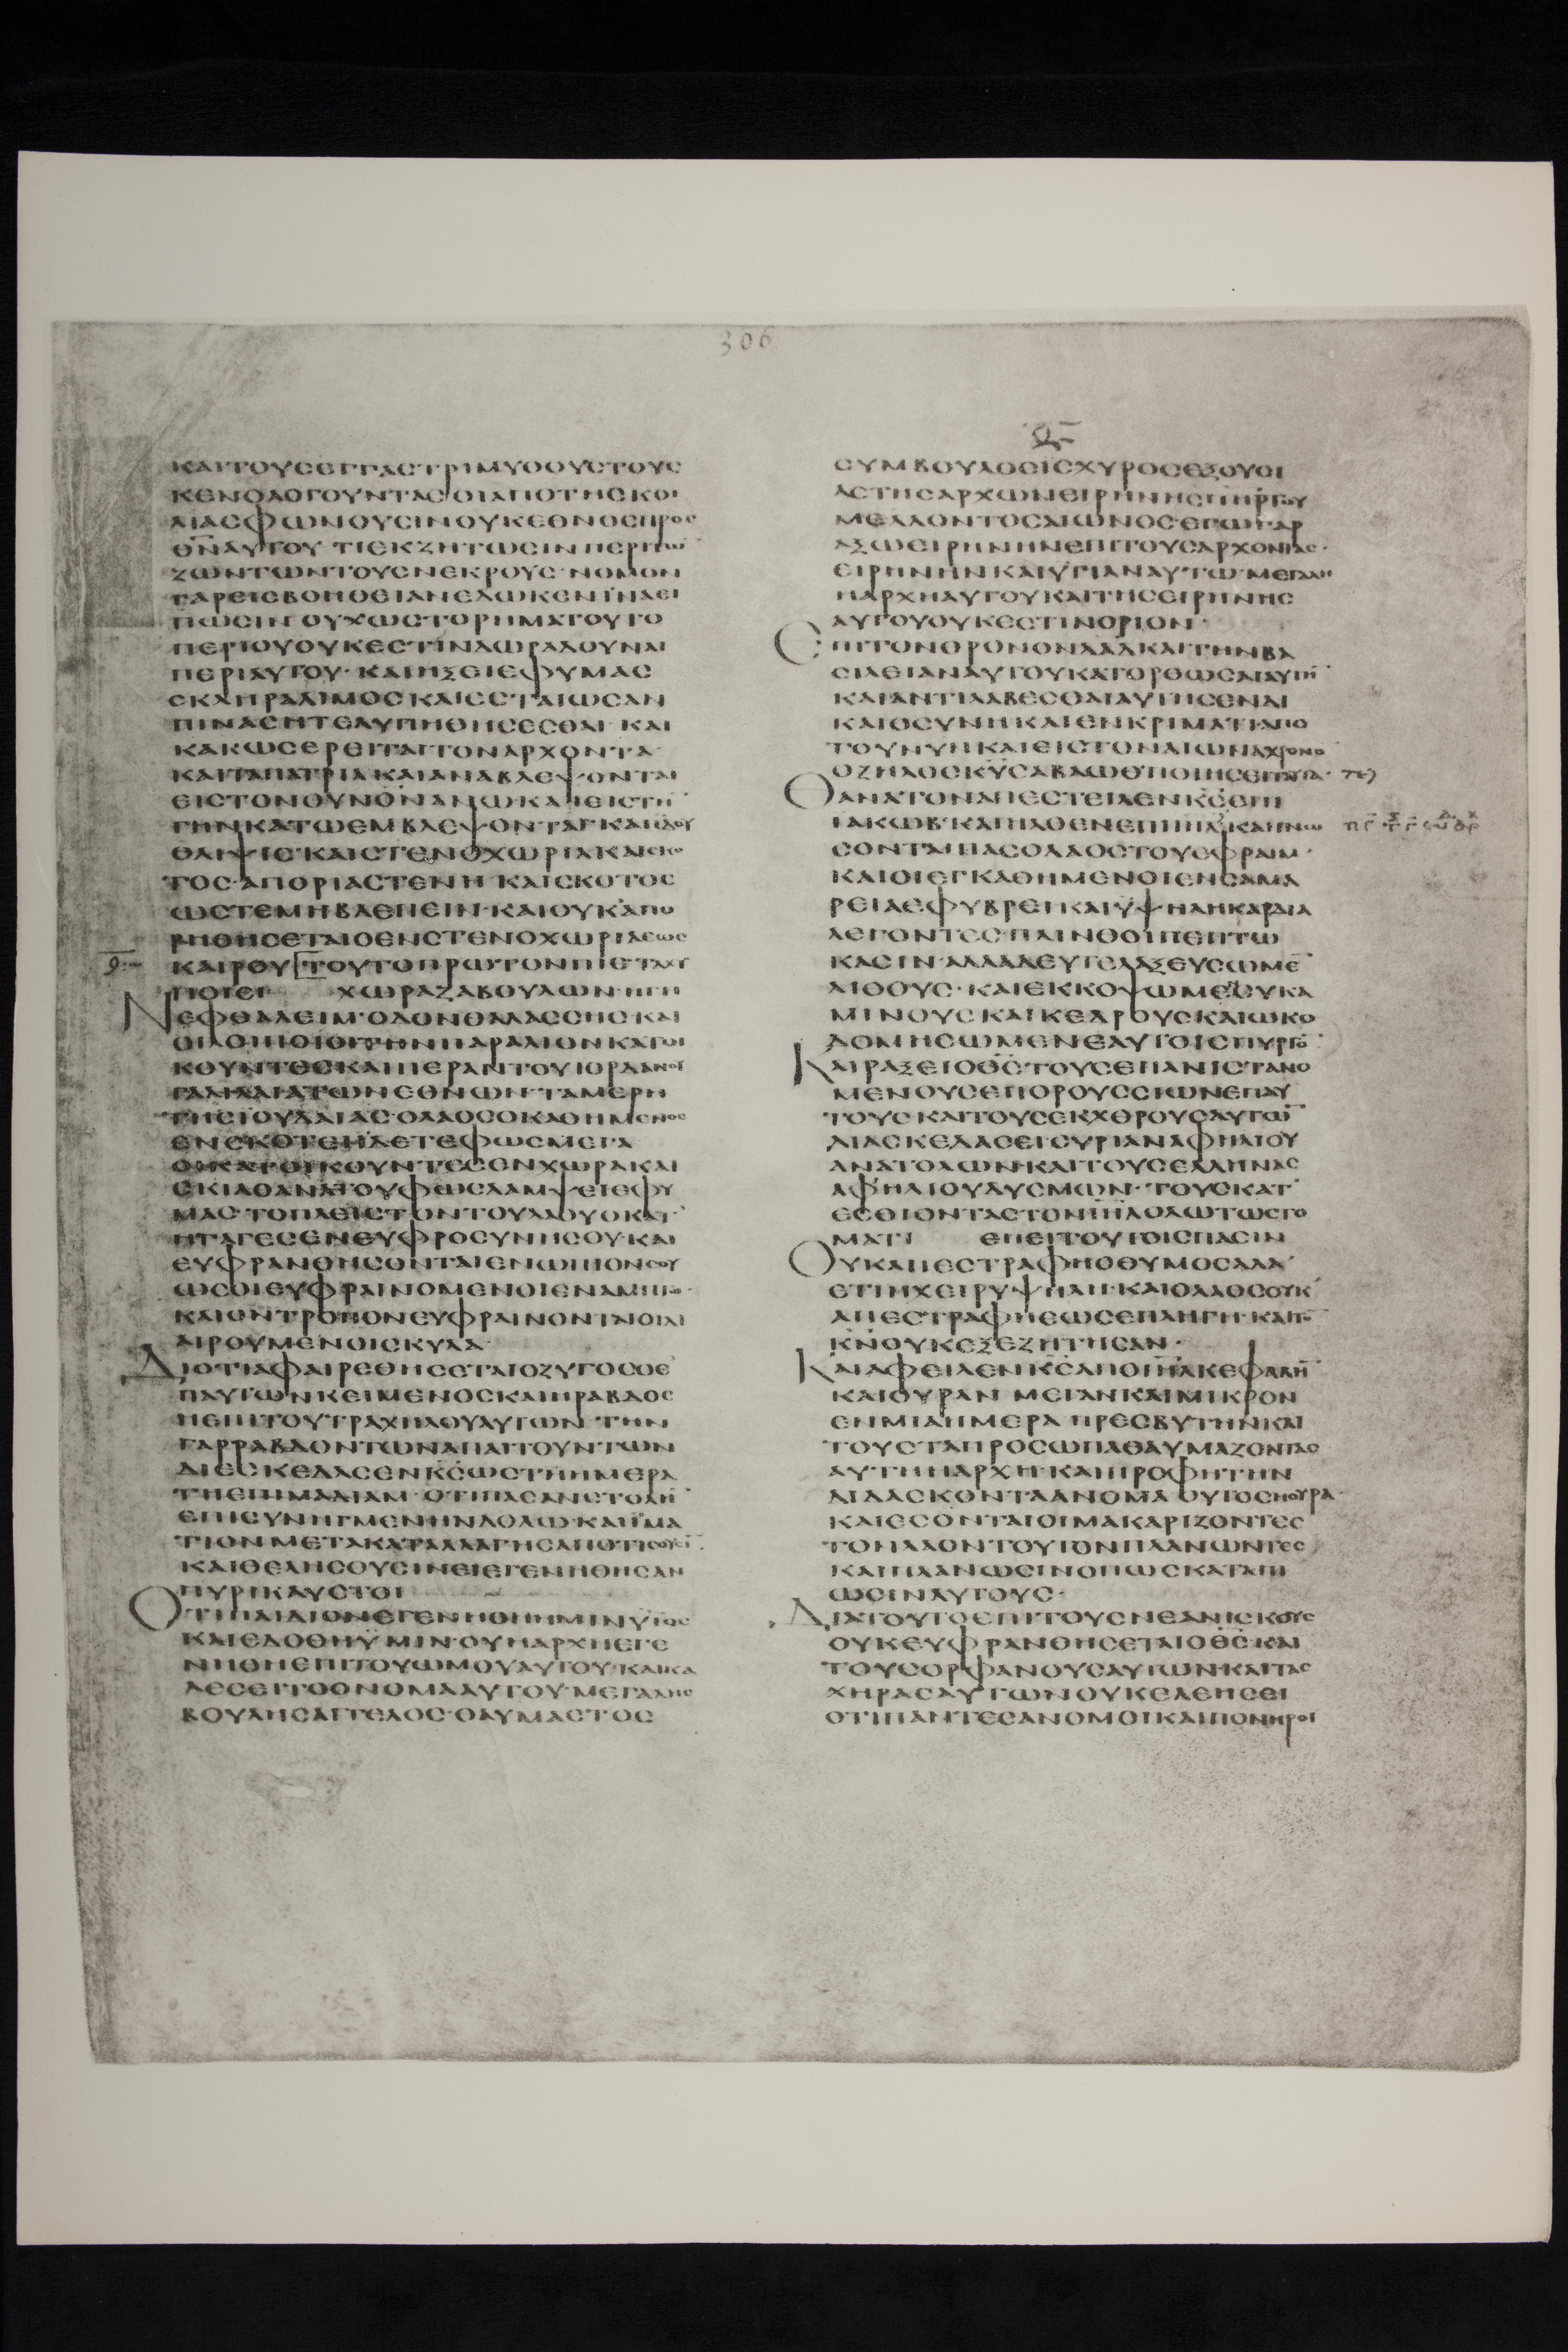 306
ΚΑΙΤΟΥΣΕΓΓΑΣΤΡΙΜΥΘΟΥΣΤΟΥΣ
ΚΕΝΟΛΟΓΟΥΝΤΑΣΟΙΑΠΟΤΗΣΚΟΙ
ΛΙΑΣΦΩΝΟΥΣΙΝΟΥΚΕΘΝΟΣΠΡΟΣ
ΘΝΑΥΤΟΥ ΤΙΕΚΖΗΤΩΣΙΝΠΕΡΙΤΩ
ΖΩΝΤΩΝΤΟΥΣΝΕΚΡΟΥΣ·ΝΟΜΟΝ
ΓΑΡΕΙΣΒΟΗΘΕΙΑΝΕΔΩΚΕΝΙΝΑΕΙ
ΠΩΣΙΝ ΟΥΧΩΣΤΟΡΗΜΑΤΟΥΤΟ
ΠΕΡΙΟΥΟΥΚΕΣΤΙΝΔΩΡΑΔΟΥΝΑΙ
ΠΕΡΙΑΥΤΟΥ·ΚΑΙΗΞΕΙΕΦΥΜΑΣ
ΣΚΛΗΡΑΛΙΜΟΣΚΑΙΕΣΤΑΙΩΣΑΝ
ΠΙΝΑΣΗΤΕΛΥΠΗΘΗΣΕΣΘΑΙ ΚΑΙ
ΚΑΚΩΣΕΡΕΙΤΑΙΤΟΝΑΡΧΟΝΤΑ
ΚΑΙΤΑΠΑΤΡΙΑΚΑΙΑΝΑΒΛΕΨΟΝΤΑΙ
ΕΙΣΤΟΝΟΥΝΟΝΑΝΩΚΑΙΕΙΣΤΗ
ΓΗΝΚΑΤΩΕΜΒΛΕΨΟΝΤΑΙ·ΚΑΙΙΔΟΥ
ΘΛΙΨΙΣ·ΚΑΙΣΤΕΝΟΧΩΡΙΑΚΑΙΣΚΟ
ΤΟΣ·ΑΠΟΡΙΑΣΤΕΝΗ·ΚΑΙΣΚΟΤΟΣ
ΩΣΤΕΜΗΒΛΕΠΕΙΝ·ΚΑΙΟΥΚΑΠΟ
ΡΗΘΗΣΕΤΑΙΟΕΝΣΤΕΝΟΧΩΡΙΑΕΩΣ
ΚΑΙΡΟΥ ΤΟΥΤΟΠΡΩΤΟΝΠΙΕΤΑΧΥ
ΠΟΙΕΙ ΧΩΡΑΖΑΒΟΥΛΩΝ·ΗΓΗ
ΝΕΦΘΑΛΕΙΜ·ΟΔΟΝΘΑΛΑΣΣΗΣΚΑΙ
ΟΙΛΟΙΠΟΙΟΙΤΗΝΠΑΡΑΛΙΟΝΚΑΤΟΙ
ΚΟΥΝΤΕΣΚΑΙΠΕΡΑΝΤΟΥΙΟΡΔΑΝΟΥ
ΓΑΛΙΛΑΙΑΤΩΝΕΘΝΩΝ·ΤΑΜΕΡΗ
ΤΗΣΙΟΥΔΑΙΑΣ·ΟΛΑΟΣΟΚΑΘΗΜΕΝΟΣ
ΕΝΣΚΟΤΕΙΙΔΕΤΕΦΩΣΜΕΓΑ
ΟΙΚΑΤΟΙΚΟΥΝΤΕΣΕΝΧΩΡΑΚΑΙ
ΣΚΙΑΘΑΝΑΤΟΥΦΩΣΛΑΜΨΕΙΕΦΥ
ΜΑΣ·ΤΟΠΛΕΙΣΤΟΝΤΟΥΛΑΟΥΟΚΑΤ
ΗΓΑΓΕΣΕΝΕΥΦΡΟΣΥΝΗΣΟΥ·ΚΑΙ
ΕΥΦΡΑΝΘΗΣΟΝΤΑΙΕΝΩΠΙΟΝΣΟΥ
ΩΣΟΙΕΥΦΡΑΙΝΟΜΕΝΟΙΕΝΑΜΗΤΩ·
ΚΑΙΟΝΤΡΟΠΟΝΕΥΦΡΑΙΝΟΝΤΑΙΟΙΔΙ
ΑΙΡΟΥΜΕΝΟΙΣΚΥΛΑ·
ΔΙΟΤΙΑΦΑΙΡΕΘΗΣΕΤΑΙΟΖΥΓΟΣΟΕ
ΠΑΥΤΩΝΚΕΙΜΕΝΟΣΚΑΙΗΡΑΒΔΟΣ
ΗΕΠΙΤΟΥΤΡΑΧΗΛΟΥΑΥΤΩΝ ΤΗΝ
ΓΑΡΡΑΒΔΟΝΤΩΝΑΠΑΙΤΟΥΝΤΩΝ
ΔΙΕΣΚΕΔΑΣΕΝΚΣΩΣΤΗΗΜΕΡΑ
ΤΗΕΠΙΜΑΔΙΑΜ·ΟΤΙΠΑΣΑΝΣΤΟΛΗ
ΕΠΙΣΥΝΗΓΜΕΝΗΝΔΟΛΩ·ΚΑΙΙΜΑ
ΤΙΟΝΜΕΤΑΚΑΤΑΛΛΑΓΗΣΑΠΟΤΙΣΟΥΣΙ
ΚΑΙΘΕΛΗΣΟΥΣΙΝΕΙΕΓΕΝΗΘΗΣΑΝ
ΠΥΡΙΚΑΥΣΤΟΙ
ΟΤΙΠΑΙΔΙΟΝΕΓΕΝΗΘΗΗΜΙΝΥΙΟΣ
ΚΑΙΕΔΟΘΗΥΜΙΝ·ΟΥΗΑΡΧΗΕΓΕ
ΝΗΘΗΕΠΙΤΟΥΩΜΟΥΑΥΤΟΥ·ΚΑΙΚΑ
ΛΕΣΕΙΤΟΟΝΟΜΑΑΥΤΟΥ·ΜΕΓΑΛΗΣ
ΒΟΥΛΗΣΑΓΓΕΛΟΣ·ΘΑΥΜΑΣΤΟΣ
ΣΥΜΒΟΥΛΟΣΙΣΧΥΡΟΣΕΞΟΥΣΙ
ΑΣΤΗΣΑΡΧΩΝΕΙΡΗΝΗΣΠΗΡΤΟΥ
ΜΕΛΛΟΝΤΟΣΑΙΩΝΟΣ·ΕΓΩΓΑΡ
ΑΞΩΕΙΡΗΝΗΝΕΠΙΤΟΥΣΑΡΧΟΝΤΑΣ·
ΕΙΡΗΝΗΝΚΑΙΥΓΙΑΝΑΥΤΩ·ΜΕΓΑΛΗ
ΗΑΡΧΗΑΥΤΟΥΚΑΙΤΗΣΕΙΡΗΝΗΣ
ΑΥΤΟΥΟΥΚΕΣΤΙΝΟΡΙΟΝ·
ΕΠΙΤΟΝΘΡΟΝΟΝΔΑΔΚΑΙΤΗΝΒΑ
ΣΙΛΕΙΑΝΑΥΤΟΥΚΑΤΟΡΘΩΣΑΙΑΥΤΗ
ΚΑΙΑΝΤΙΛΑΒΕΣΘΑΙΑΥΤΗΣΕΝΔΙ
ΚΑΙΟΣΥΝΗΚΑΙΕΝΚΡΙΜΑΤΙΑΠΟ
ΤΟΥΝΥΝΚΑΙΕΙΣΤΟΝΑΙΩΝΑΧΡΟΝΟ
ΟΖΗΛΟΣΚΥΣΑΒΑΩΘΠΟΙΗΣΕΙΤΑΥΤΑ·
ΘΑΝΑΤΟΝΑΠΕΣΤΕΙΛΕΝΚΣΕΠΙ
ΙΑΚΩΒ·ΚΑΙΗΛΘΕΝΕΠΙΙΗΛΚΑΙΓΝΩ
ΣΟΝΤΑΙΠΑΣΟΛΑΟΣΤΟΥΕΦΡΑΙΜ·
ΚΑΙΟΙΕΓΚΑΘΗΜΕΝΟΙΕΝΣΑΜΑ
ΡΕΙΑΕΦΥΒΡΕΙΚΑΙΥΨΗΛΗΚΑΡΔΙΑ
ΛΕΓΟΝΤΕΣ·ΠΛΙΝΘΟΙΠΕΠΤΩ
ΚΑΣΙΝ·ΑΛΛΑΔΕΥΤΕΛΑΞΕΥΣΩΜΕ
ΛΙΘΟΥΣ·ΚΑΙΕΚΚΟΨΩΜΕΣΥΚΑ
ΜΙΝΟΥΣΚΑΙΚΕΔΡΟΥΣΚΑΙΩΚΟ
ΔΟΜΗΣΩΜΕΝΕΑΥΤΟΙΣΠΥΡΓΟ
ΚΑΙΡΑΞΕΙΟΘΣΤΟΥΣΕΠΑΝΙΣΤΑΝΟ
ΜΕΝΟΥΣΕΠΟΡΟΥΣΣΙΩΝΕΠΑΥ
ΤΟΥΣΚΑΙΤΟΥΣΕΚΧΘΡΟΥΣΑΥΤΩ
ΔΙΑΣΚΕΔΑΣΕΙ·ΣΥΡΙΑΝΑΦΗΛΙΟΥ
ΑΝΑΤΟΛΩΝ·ΚΑΙΤΟΥΣΕΛΛΗΝΑΣ
ΑΦΗΛΙΟΥΔΥΣΜΩΝ·ΤΟΥΣΚΑΤ
ΕΣΘΙΟΝΤΑΣΤΟΝΙΗΛΟΛΩΤΩΣΤΟ
ΜΑΤΙ ΕΠΕΙΤΟΥΤΟΙΣΠΑΣΙΝ
ΟΥΚΑΠΕΣΤΡΑΦΗΟΘΥΜΟΣΑΛΛ
ΕΤΙΗΧΕΙΡΥΨΗΛΗ·ΚΑΙΟΛΑΟΣΟΥΚ
ΑΠΕΣΤΡΑΦΗΕΩΣΕΠΛΗΓΗ·ΚΑΙΤ
ΚΝΟΥΚΕΞΕΖΗΤΗΣΑΝ·
ΚΑΙΑΦΕΙΛΕΝΚΣΑΠΟΙΗΛΚΕΦΑΛΗ
ΚΑΙΟΥΡΑΝ ΜΕΓΑΝΚΑΙΜΙΚΡΟΝ
ΕΝΜΙΑΗΜΕΡΑ ΠΡΕΣΒΥΤΗΝΚΑΙ
ΤΟΥΣΤΑΠΡΟΣΩΠΑΘΑΥΜΑΖΟΝΤΑΣ
ΑΥΤΗΗΑΡΧΗ·ΚΑΙΠΡΟΦΗΤΗΝ
ΔΙΔΑΣΚΟΝΤΑΑΝΟΜΑ ΟΥΤΟΣΗΟΥΡΑ·
ΚΑΙΕΣΟΝΤΑΙΟΙΜΑΚΑΡΙΖΟΝΤΕΣ
ΤΟΝΛΑΟΝΤΟΥΤΟΝΠΛΑΝΩΝΤΕΣ
ΚΑΙΠΛΑΝΩΣΙΝΟΠΩΣΚΑΤΑΠΙ
ΩΣΙΝΑΥΤΟΥΣ·
ΔΙΑΤΟΥΤΟΕΠΙΤΟΥΣΝΕΑΝΙΣΚΟΥΣ
ΟΥΚΕΥΦΡΑΝΘΗΣΕΤΑΙΟΘΣΚΑΙ
ΤΟΥΣΟΡΦΑΝΟΥΣΑΥΤΩΝ·ΚΑΙΤΑΣ
ΧΗΡΑΣΑΥΤΩΝΟΥΚΕΛΕΗΣΕΙ
ΟΤΙΠΑΝΤΕΣΑΝΟΜΟΙΚΑΙΠΟΝΗΡΟΙ